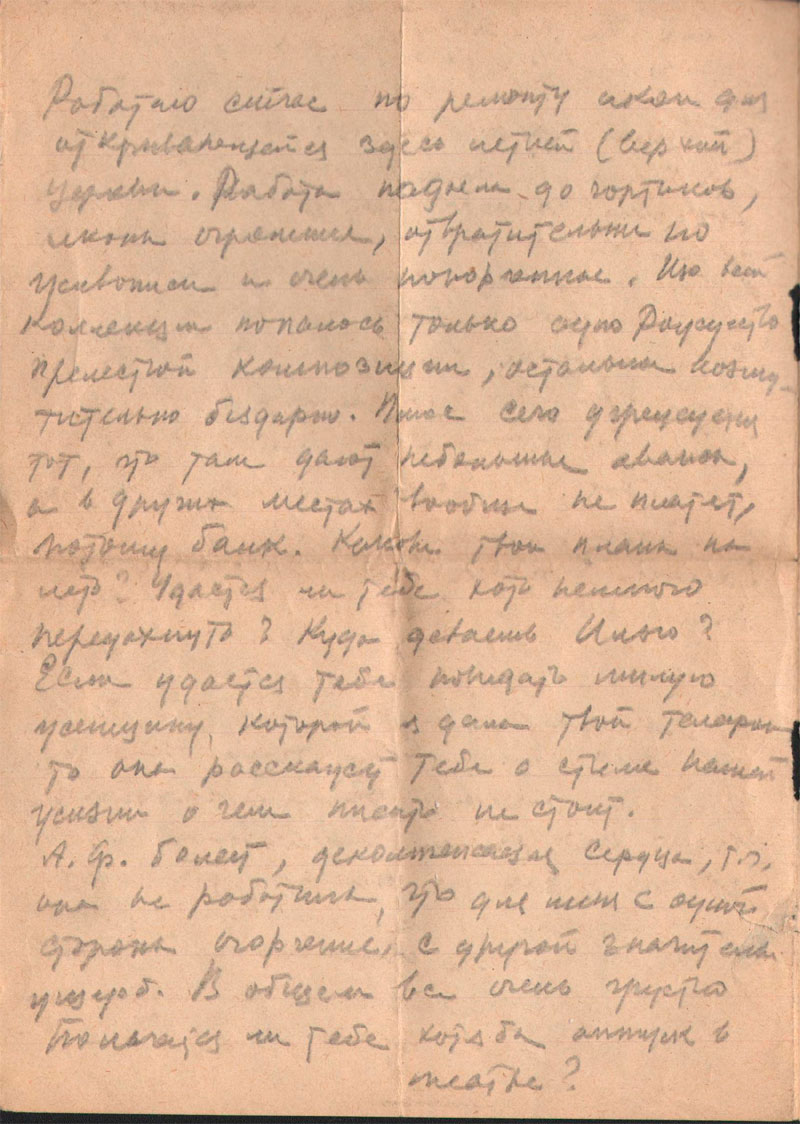 Работаю сейчас по ремонту икон для
открывающейся здесь летней (верхней)
церкви. Работа надоела до чортиков,
иконы огромные, отвратительны по
живописи и очень попорченные. Изо всей
коллекции попалось только одно Рождество
прелестной композиции, остальные возму-
тительно бездарно. Плюс сего
тот, что там дают небольшие авансы,
а в других местах вообще не платят,
потому банк. Каковы твои планы на
лето? Удастся ли тебе хоть немного
передохнуть? Куда деваешь Илью?
Если удастся тебе повидать милую
женщину, которой я дала твой телефон
то она расскажет тебе о стиле нашей
жизни о чем писать не стоит.
А. Ф. болеет, декомпенсация сердца, т.ч.
она не работник, что для меня с одной
стороны огорчение, с другой значительн.
ущерб. В общем все очень грустно
Полагается ли тебе хотя бы отпуск в
театре?